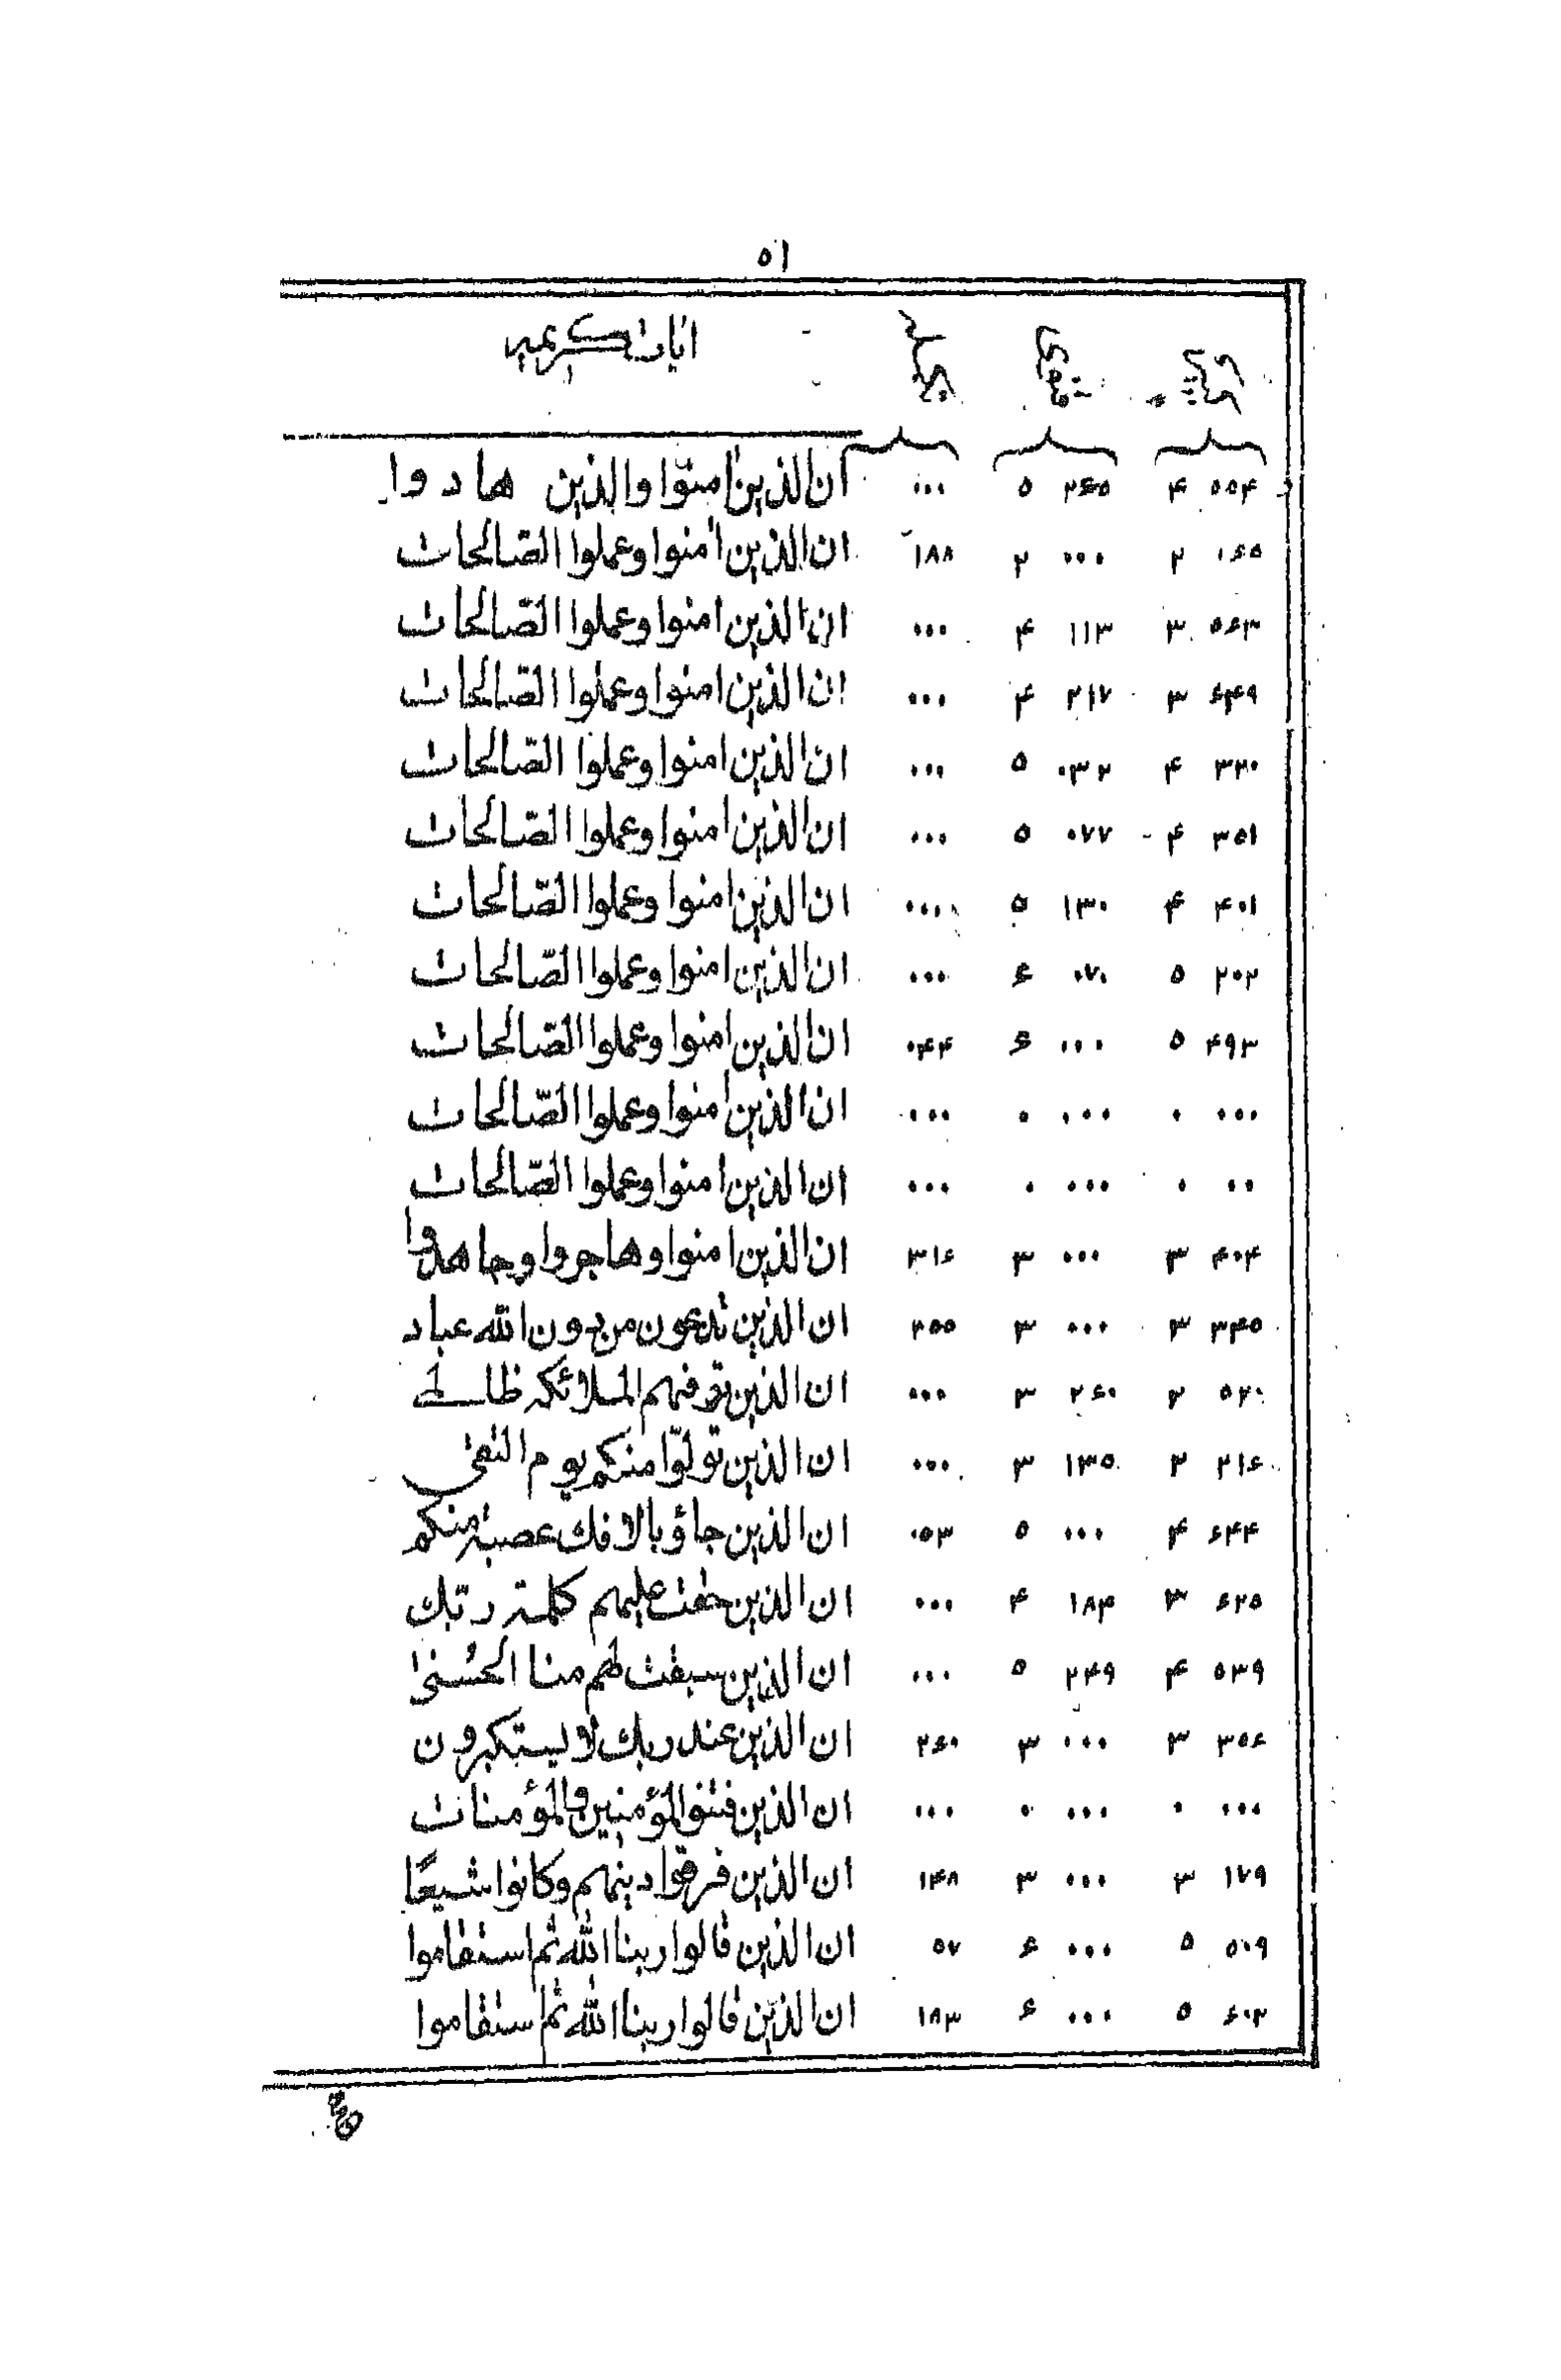 ٥١
ايات كريمه
٥٥۴ ۴ ٢۶٥ ٥ ... ان الذين امنوا والذين هادوا
٠۶٥ ٢ ... ٢ ١٨٨ ان الذين امنوا وعملوا الصّالحات
٥۶٣ ٣ ١١٣ ۴ ... ان الذين امنوا وعملوا الصّالحات
۶۴٩ ٣ ٢١٧ ۴ ... ان الذين امنوا وعملوا الصّالحات
٣٢٠ ۴ ٠٣٢ ٥ ... ان الذين امنوا وعملوا الصّالحات
٣٥١ ۴ ٠٧٧ ٥ ... ان الذين امنوا وعملوا الصّالحات
۴٠١ ۴ ١٣٠ ٥ ... ان الذين امنوا وعملوا الصّالحات
٢٠٢ ٥ ٠٧٠ ۶ ... ان الذين امنوا وعملوا الصّالحات
۴٩٣ ٥ ... ۶ ٠۴۴ ان الذين امنوا وعملوا الصّالحات
... ٠ ... ٠ ... ان الذين امنوا وعملوا الصّالحات
.. ٠ ... ٠ ... ان الذين امنوا وعملوا الصّالحات
۴٠۴ ٣ ... ٣ ٣١۶ ان الذين امنوا وهاجروا وجاهدوا
٣۴٥ ٣ ... ٣ ٢٥٥ ان الذين تدعون من دون الله عباد
٥٢٠ ٢ ٢۶٠ ٣ ... ان الذين توفيهم الملائكه ظالمى
٢١۶ ٢ ١٣٥ ٣ ... ان الذين تولّوا منكم يوم التقى
۶۴۴ ۴ ... ٥ ٠٥٣ ان الذين جاؤ بالافك عصبة منكم
۶٢٥ ٣ ١٨۴ ۴ ... ان الذين حقت عليهم كلمة ربك
٥٣٩ ۴ ٢۴٩ ٥ ... ان الذين سبقت لهم منا الحسنى
٣٥۶ ٣ ... ٣ ٢۶٠ ان الذين عند ربك لا يستكبرون
... ٠ ... ٠ ... ان الذين فتنوا المؤمنين والمؤمنات
١٧٩ ٣ ... ٣ ١۴٨ ان الذين فرقوا دينهم وكانوا شيعًا
٥٠٩ ٥ ... ۶ ٥٧ ان الذين قالوا ربنا الله ثم استقاموا
۶٠٣ ٥ ... ۶ ١٨٣ ان الذين قالوا ربنا الله ثم استقاموا